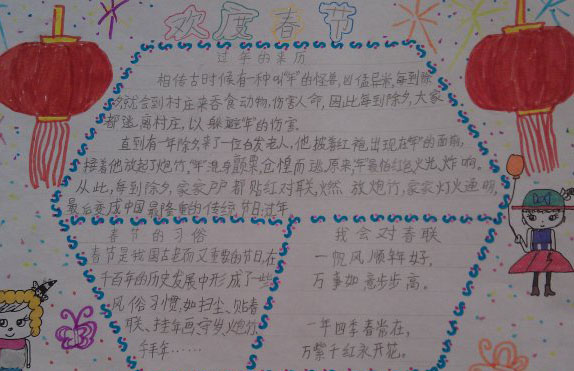 欢度春节
过年的来历
相传古时候有一种叫"年"的怪兽,凶猛异常,每到除
夕就会到村庄来吞食动物,伤害人命,因此,每到除夕,大家
都逃离村庄,以躲避"年"的伤害。
直到有一年除夕,来了一位白发老人,他披着红袍,出现在"年"的面前,
接着他放起了炮竹,"年"浑身颤栗,仓惶而逃,原来,"年"最怕红色,火光,炸响。
从此,每到除夕,家家户户都贴红对联,燃放炮竹,家家灯火通明,
最后变成中国最隆重的传统节日:过年。
春节的习俗
春节是我国古老而又重要的节日,在
千百年的历史发展中形成了一些
风俗习惯,如扫尘、贴春
联、挂年画、守岁、炮竹、
拜年……
我会对春联
一帆风顺年年好,
万事如意步步高。
一年四季春常在,
万紫千红永开花。